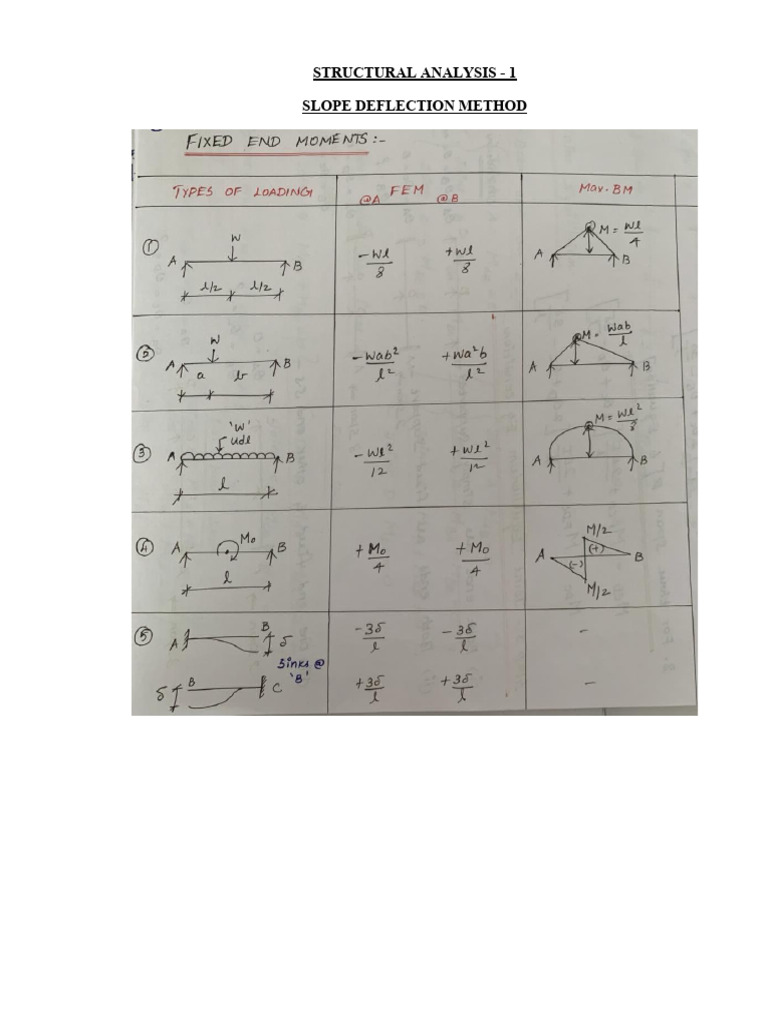 STRUCTURAL ANALYSIS - 1
SLOPE DEFLECTION METHOD
FIXED END MOMENTS:-
TYPES OF LOADING FEM Max. BM
@A @B
① W A B l/2 l/2 -Wl/8 +Wl/8 A B M = Wl/4
② W A B a b -Wab²/l² +Wa²b/l² A B M = Wab/l
③ 'W' udl A B l -Wl²/12 +Wl²/12 A B M = Wl²/8
④ A Mo B l +Mo/4 +Mo/4 A B M/2 (+) (-) M/2
⑤ A B δ -3δ/l -3δ/l -
Sinks @ 'B'
δ B C +3δ/l +3δ/l -